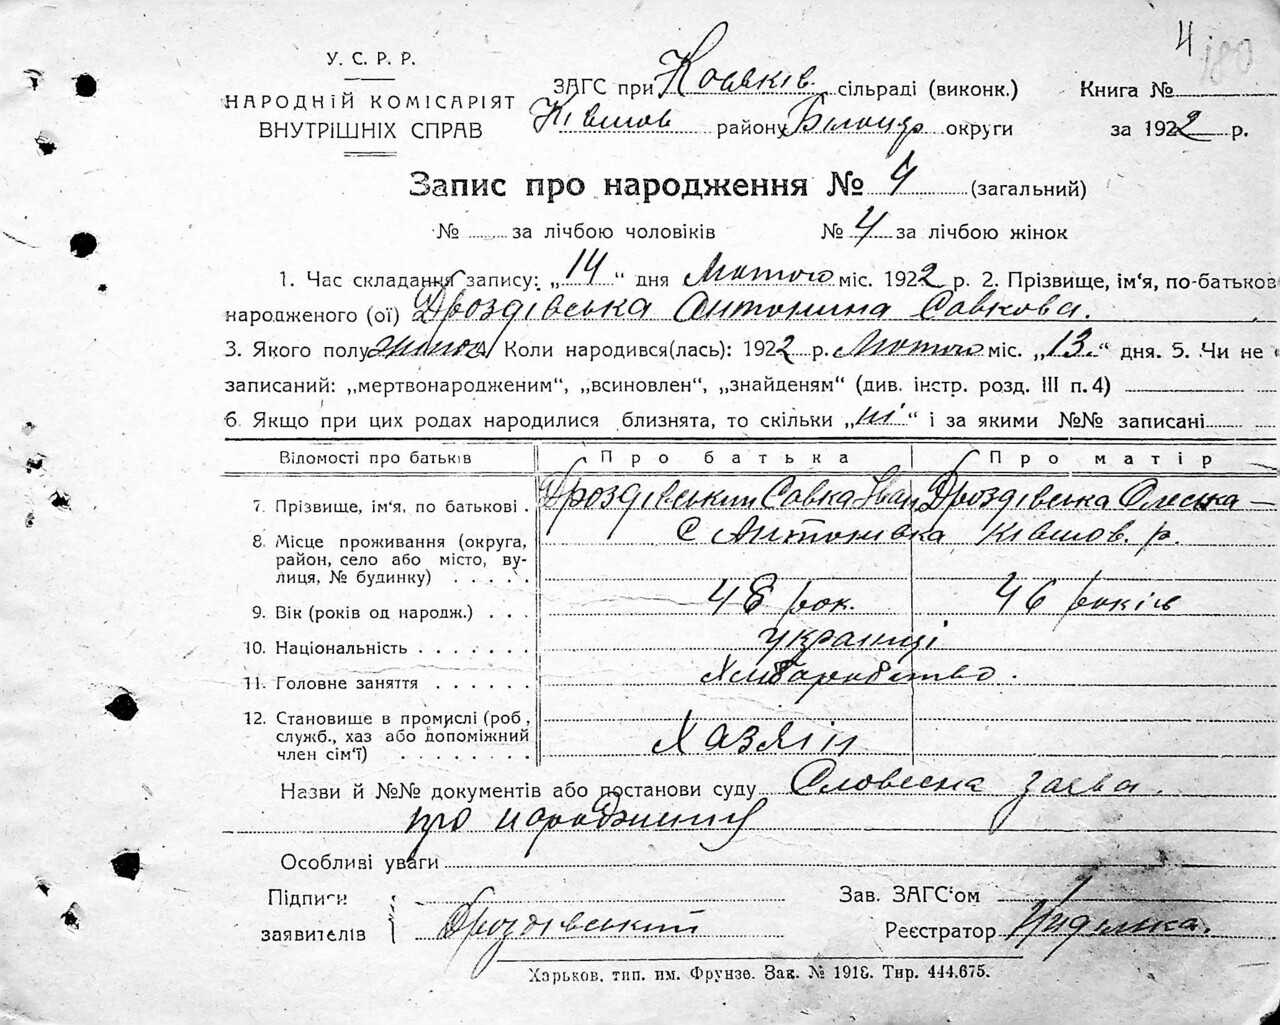 4 180
У. С. Р. Р.
НАРОДНІЙ КОМІСАРІЯТ
ВНУТРІШНІХ СПРАВ
ЗАГС при сільраді (виконк.)
району округи
Книга №
за 1922 р.
Запис про народження № 4 (загальний)
№ за лічбою чоловіків № 4 за лічбою жінок
1. Час складання запису: „14“ дня Лютого міс. 1922 р. 2. Прізвище, ім'я, по-батьков
народженого (ої) Дроздівська Антонина Савкова.
3. Якого полу Коли народився(лась): 1922 р. Лютого міс. „13.“ дня. 5. Чи не
записаний: „мертвонародженим“, „всиновлен“, „знайденям“ (див. інстр. розд. III п. 4)
6. Якщо при цих родах народилися близнята, то скільки „ні“ і за якими №№ записані
Відомості про батьків Про батька Про матір
7. Прізвище, ім'я, по батькові . Дроздівський Савка Іван Дроздівська Олеська —
8. Місце проживання (округа, район, село або місто, вулиця, № будинку) . . . . . С Антонівка Ківшов. р.
9. Вік (років од народж.) . . . 48 рок. 46 років
10. Національність . . . . . . . українці
11. Головне заняття . . . . . . Хліборобство.
12. Становище в промислі (роб, служб., хаз або допоміжний член сім'ї) . . . . . . . . Хазяін
Назви й №№ документів або постанови суду Словесна заева.
про народження
Особливі уваги
Підписи
заявителів Дроздівський
Зав. ЗАГС'ом
Реєстратор
Харьков, тип. им. Фрунзе. Зак. № 1918. Тир. 444.675.